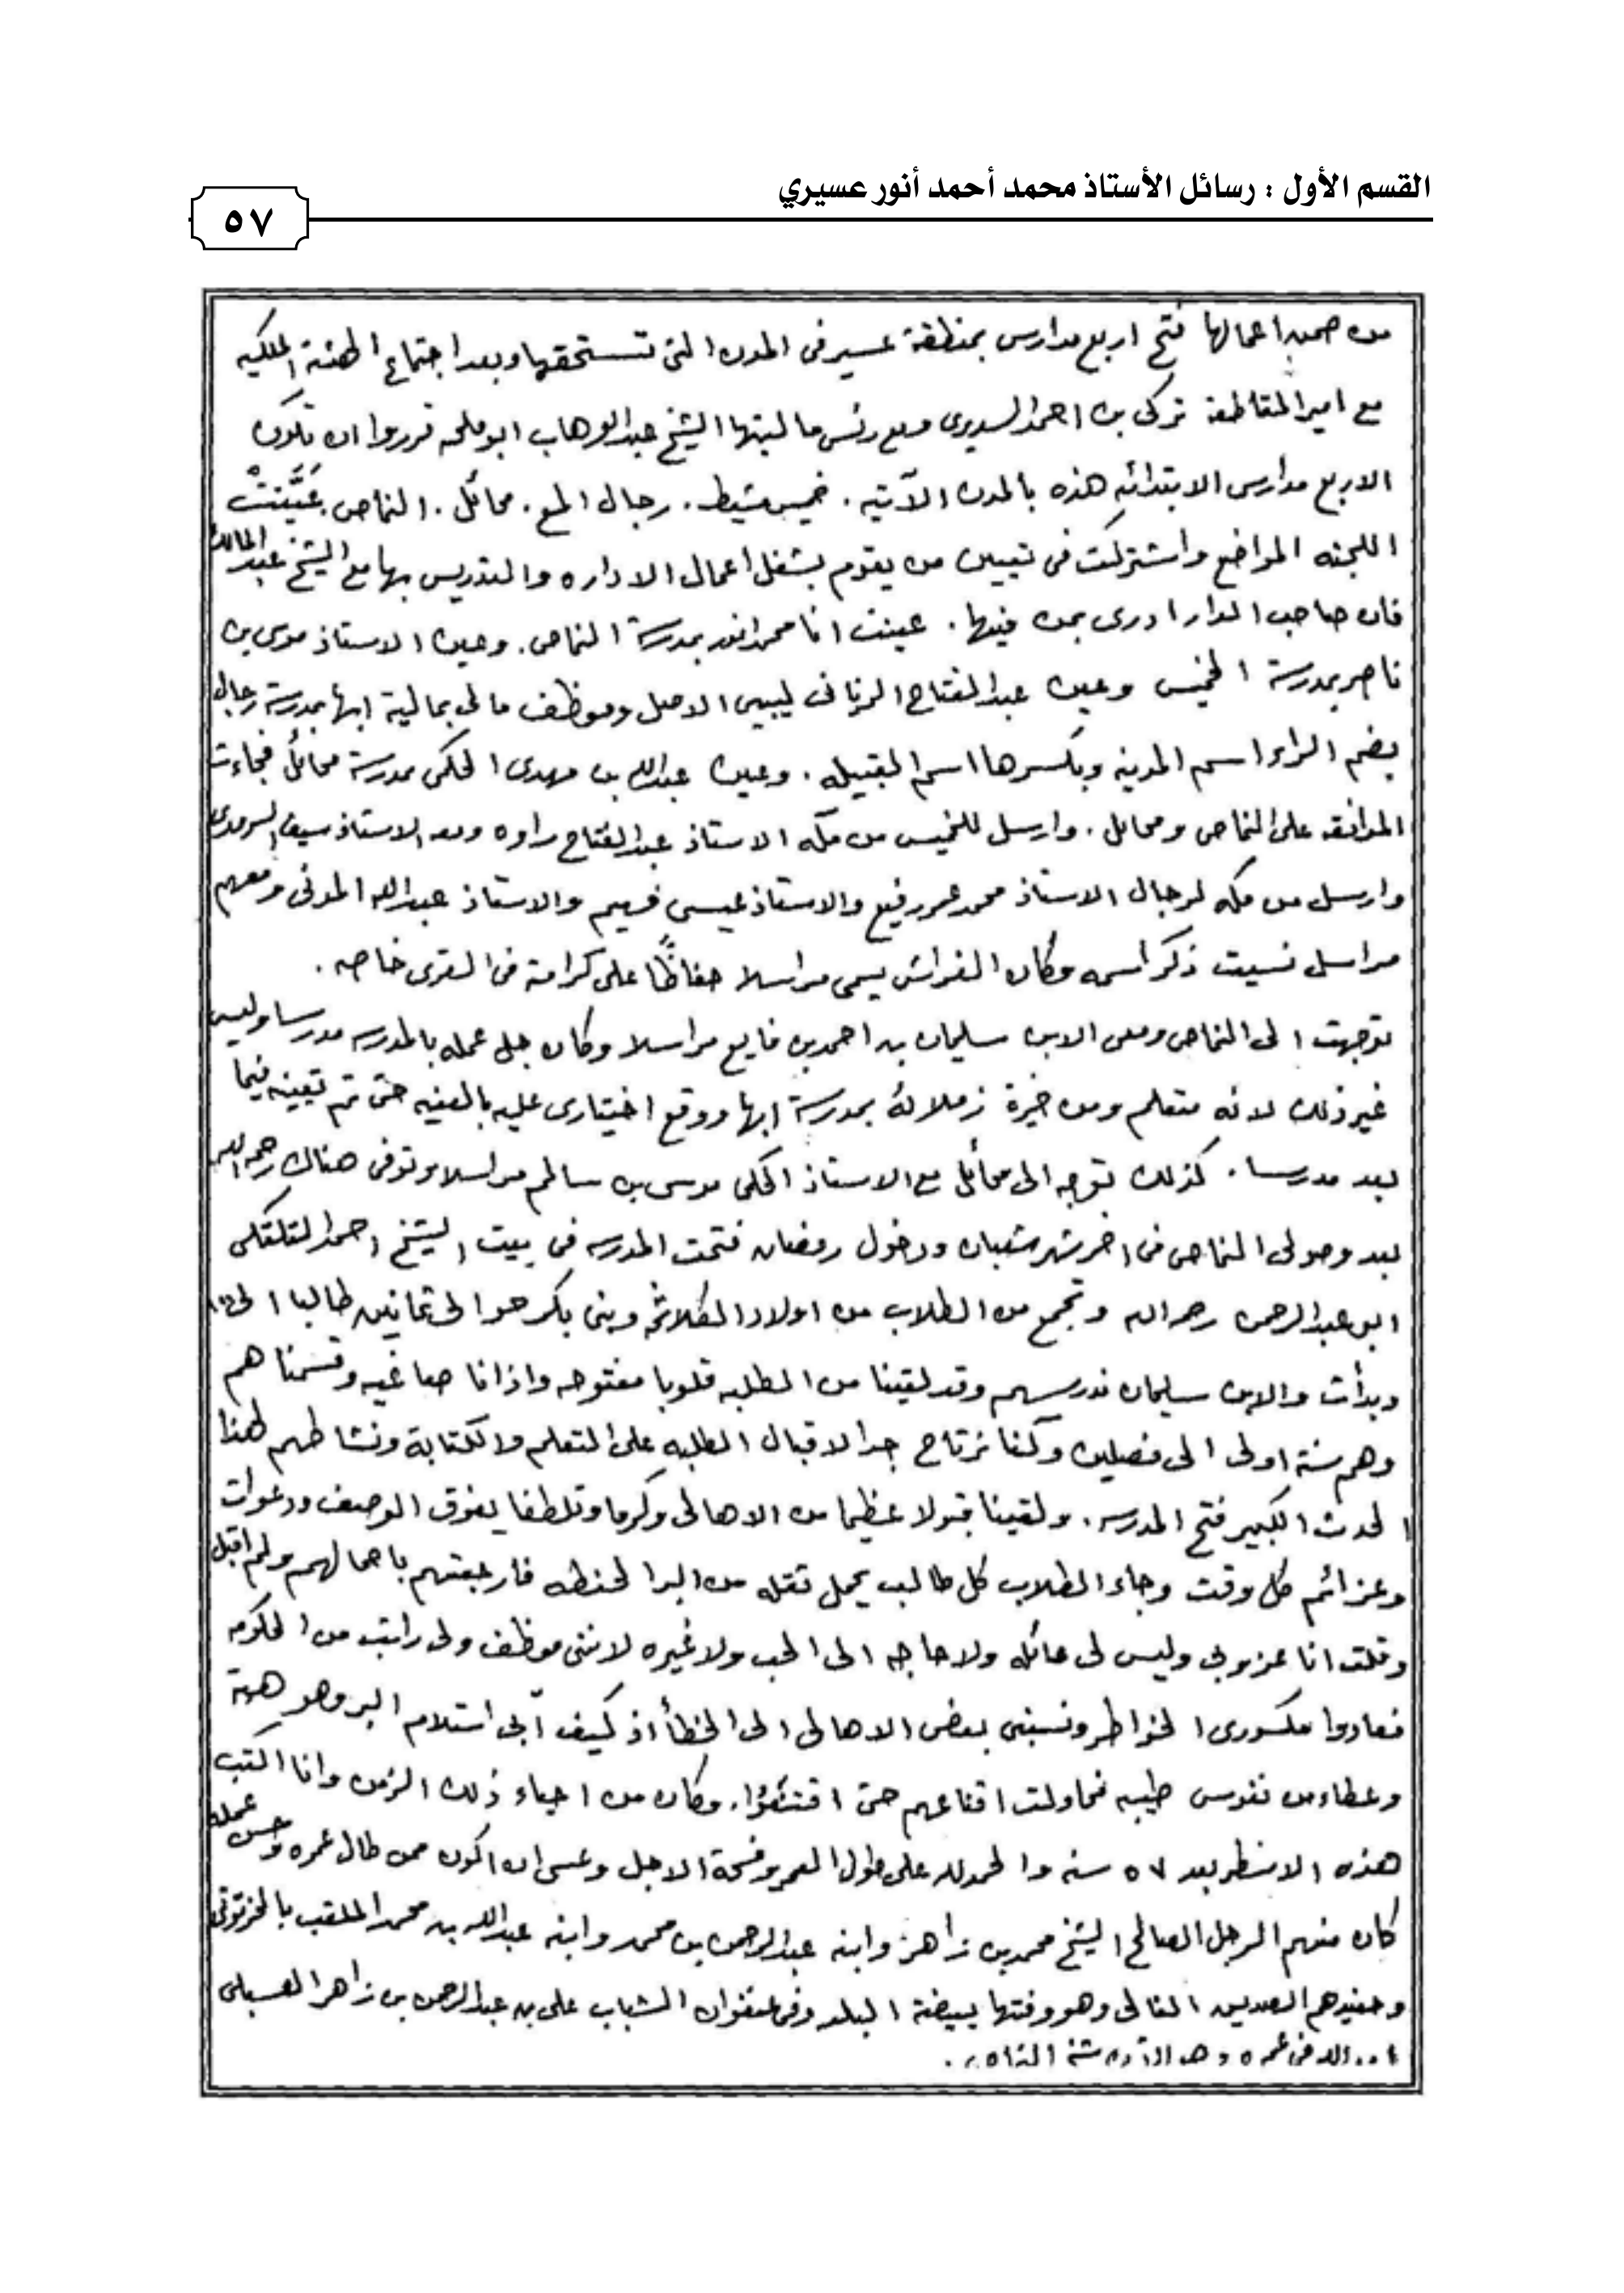 القسم الأول : رسائل الأستاذ محمد أحمد أنور عسيري
٥٧
من ضمن اعمالها فتح اربع مدارس بمنطقة عسير فى المدن التى تستحقها وبعد اجتماع الهئة الملكيه
مع امير المقاطعة تركى بن احمد السديرى ومع رئس ماليتها الشيخ عبدالوهاب ابوملحه قرروا ان تكون
الاربع مدارس الابتدائيه هذه بالمدن الآتيه . خميس مشيط . رجال المع . محائل . النماص . عَيَّنتْ
اللجنه المواضع واشتركت فى تعيين من يقوم بشغل اعمال الاداره والتدريس بها مع الشيخ عبدالمالك
فان صاحب الدار ادرى بمن فيها . عينت انا محمد انور بمدرسة النماص . وعين الاستاذ موسى بن
ناصر بمدرسة الخميس وعين عبدالفتاح الزناتى ليبيى الاصل وموظف مالى بمالية ابها بمدرسة رجال
بضم الراء اسم المدينه وبكسرها اسم القبيله . وعين عبدالله بن مهدى الحكمى بمدرسة محائل فجاءت
الموافقه على النماص ومحايل . وارسل للخميس من مكه الاستاذ عبدالفتاح راوه ومعه الاستاذ سيف
وارسل من مكه لرجال الاستاذ محمد عمر رفيع والاستاذ عيسى فهيم والاستاذ عبدالله المدنى ومعهم
مراسل نسيت ذكر اسمه وكان الفراش يسمى مراسلا حفاظًا على كرامة فى القرى خاصه .
توجهت الى النماص ومعى الابن سليمان بن احمد بن فايع مراسلا وكان جل عمله بالمدرسه مدرسا وليس
غير ذلك لانه متعلم ومن خيرة زملائه بمدرسة ابها ووقع اختيارى عليه بالعينه حتى تم تعيينه فيما
بعد مدرسا . كذلك توجه الى محائل مع الاستاذ الحكمى موسى بن سالم مراسلا وتوفى هناك رحمه الله
بعد وصولى النماص فى اخر شهر شعبان ودخول رمضان فتحت المدرسه فى بيت الشيخ احمد
ابو عبدالرحمن رحمه الله وتجمع من الطلاب من اولاد الكلاثمه وبنى بكر حوالى ثمانين طالبا الى
وبدأت والابن سليمان ندرسهم وقد لقينا من الطلبه قلوبا مفتوحه واذانا صاغيه وقسمناهم
وهم سنة اولى الى فصلين وكنا نرتاح جدا لاقبال الطلبه على التعلم والكتابة ونشاطهم لهذا
الحدث الكبير فتح المدرسه . ولقينا قبولا عظيما من الاهالى وكرما وتلطفا يفوق الوصف ودعوات
وعزائم كل وقت وجاء الطلاب كل طالب يحمل ثقله من البر الحنطه فارجعتهم باحمالهم ولم اقبل
وقلت انا عزوبى وليس لى عائله ولا حاجه الى الحب ولا غيره لانى موظف ولى راتب من الحكومه
فعادوا مكسورى الخواطر ونسبنى بعض الاهالى الى الخطأ اذ كيف آبى استلام البر وهو هبة
وعطاء من نفوس طيبه فحاولت اقناعهم حتى اقتنعوا . وكان من احياء ذلك الزمن وانا اكتب
هذه الاسطر بعد ٥٧ سنه والحمدلله على طول العمر وفسحة الاجل وعسى ان اكون ممن طال عمره وحسن عمله
كان منهم الرجل الصالح الشيخ محمد بن زاهر وابنه عبدالرحمن بن محمد وابنه عبدالله بن محمد الملقب
وحفيدهم الصديق الغالى وهو وقتها بيضة البلد وفى عنفوان الشباب على بن عبدالرحمن بن زاهر العسبلى